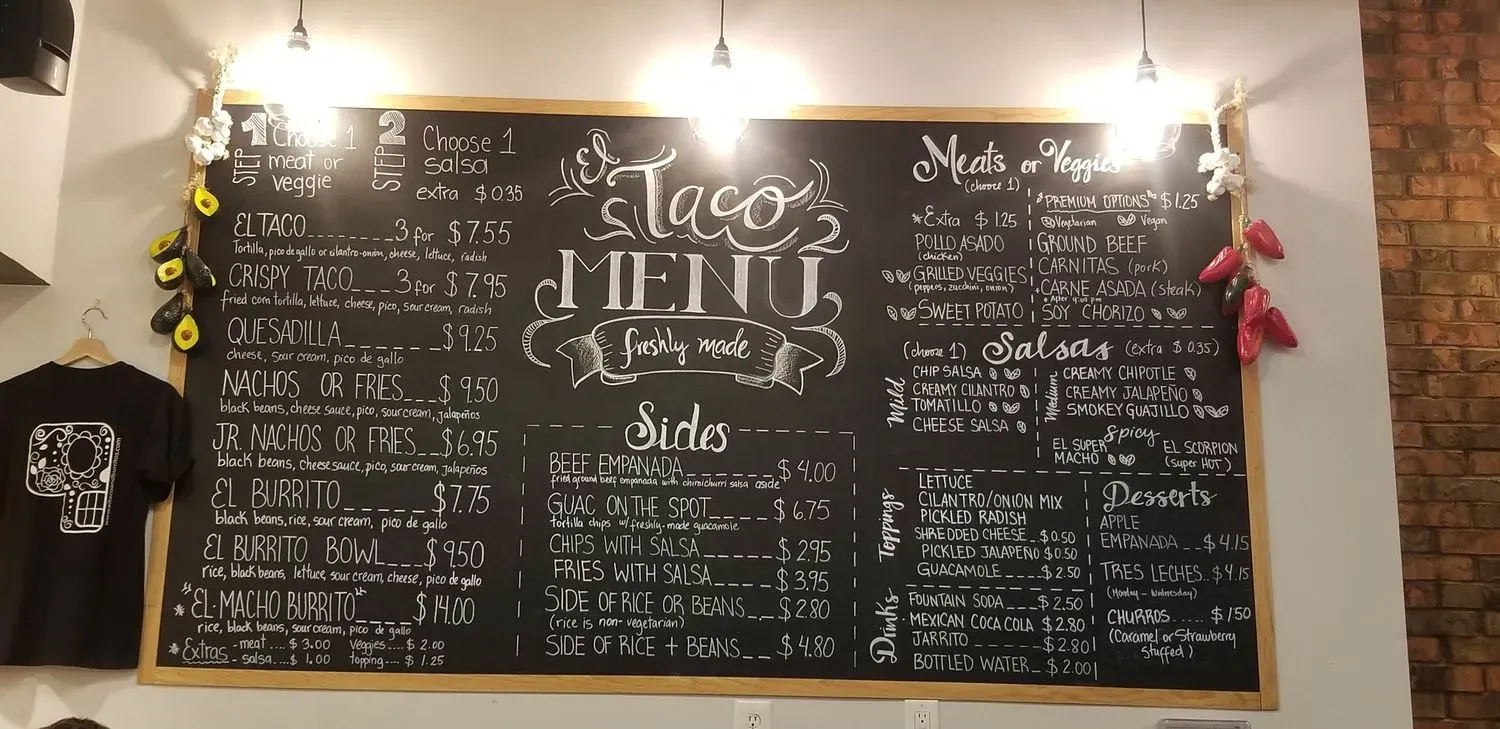 STEP 1 Choose 1
meat or
veggie
STEP 2 Choose 1
salsa
extra $0.35
EL TACO________3 for $7.55
Tortilla, pico de gallo or cilantro-onion, cheese, lettuce, radish
CRISPY TACO___3 for $7.95
fried corn tortilla, lettuce, cheese, pico, sour cream, radish
QUESADILLA______$9.25
cheese, sour cream, pico de gallo
NACHOS OR FRIES___$9.50
black beans, cheese sauce, pico, sour cream, jalapeños
JR. NACHOS OR FRIES__$6.95
black beans, cheese sauce, pico, sour cream, jalapeños
EL BURRITO______$7.75
black beans, rice, sour cream, pico de gallo
EL BURRITO BOWL___$9.50
rice, black beans, lettuce, sour cream, cheese, pico de gallo
* "EL MACHO BURRITO"____$14.00
rice, black beans, sour cream, pico de gallo
* Extras - meat .... $3.00 Veggies .... $2.00
- salsa .... $1.00 topping .... $1.25
El
Taco
MENU
freshly made
Sides
BEEF EMPANADA_______$4.00
fried ground beef empanada with chimichurri salsa aside
GUAC ON THE SPOT_____$6.75
tortilla chips w/ freshly-made guacamole
CHIPS WITH SALSA______$2.95
FRIES WITH SALSA_____$3.95
SIDE OF RICE OR BEANS__$2.80
(rice is non-vegetarian)
SIDE OF RICE + BEANS__$4.80
Meats or Veggies
(choose 1)
*Extra $1.25
POLLO ASADO
(chicken)
GRILLED VEGGIES
(peppers, zucchini, onion)
SWEET POTATO
"PREMIUM OPTIONS" $1.25
Vegetarian Vegan
GROUND BEEF
CARNITAS (pork)
CARNE ASADA (steak)
* After 4:00 pm
SOY CHORIZO
(choose 1) Salsas (extra $0.35)
Mild
CHIP SALSA
CREAMY CILANTRO
TOMATILLO
CHEESE SALSA
Medium
CREAMY CHIPOTLE
CREAMY JALAPEÑO
SMOKEY GUAJILLO
Spicy
EL SUPER
MACHO
EL SCORPION
(super HOT)
Toppings
LETTUCE
CILANTRO/ONION MIX
PICKLED RADISH
SHREDDED CHEESE__$0.50
PICKLED JALAPEÑO $0.50
GUACAMOLE_____$2.50
Drinks
FOUNTAIN SODA___$2.50
MEXICAN COCA COLA $2.80
JARRITO________$2.80
BOTTLED WATER_$2.00
Desserts
APPLE
EMPANADA__$4.15
TRES LECHES__$4.15
(Monday - Wednesday)
CHURROS..... $1.50
(Caramel or Strawberry
stuffed)